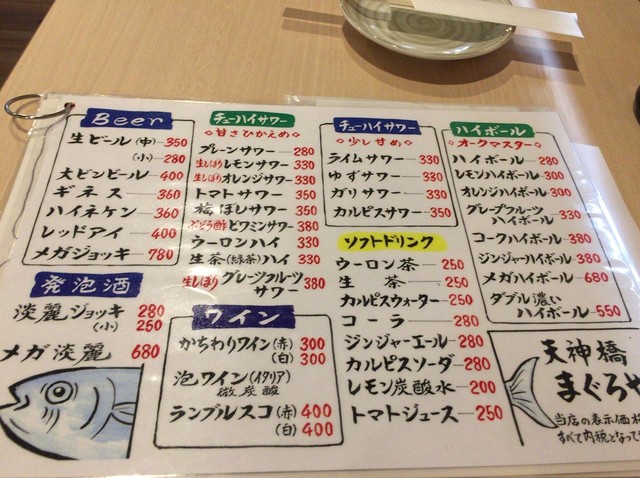 Beer
生ビール(中) 350
(小) 280
大ビンビール 400
ギネス 360
ハイネケン 360
レッドアイ 400
メガジョッキ 780
発泡酒
淡麗ジョッキ 280
(小) 250
メガ淡麗 680
チューハイサワー
◇甘さひかえめ◇
プレーンサワー 280
生しぼりレモンサワー 330
生しぼりオレンジサワー 330
トマトサワー 350
梅ぼしサワー 350
ぶどう酢ビワミンサワー 380
ウーロンハイ 330
生茶(緑茶)ハイ 330
生しぼりグレープフルーツサワー 380
ワイン
かちわりワイン(赤) 300
(白) 300
泡ワイン(イタリア)
微炭酸
ランブルスコ(赤) 400
(白) 400
チューハイサワー
◇少し甘め◇
ライムサワー 330
ゆずサワー 330
ガリサワー 330
カルピスサワー 350
ソフトドリンク
ウーロン茶 250
生茶 250
カルピスウォーター 250
コーラ 280
ジンジャーエール 280
カルピスソーダ 280
レモン炭酸水 200
トマトジュース 250
ハイボール
◇オークマスター◇
ハイボール 280
レモンハイボール 300
オレンジハイボール 300
グレープフルーツ
ハイボール 330
コークハイボール 380
ジンジャーハイボール 380
メガハイボール 680
ダブル濃い
ハイボール 550
天神橋
まぐろや
当店の表示価格
すべて内税となって